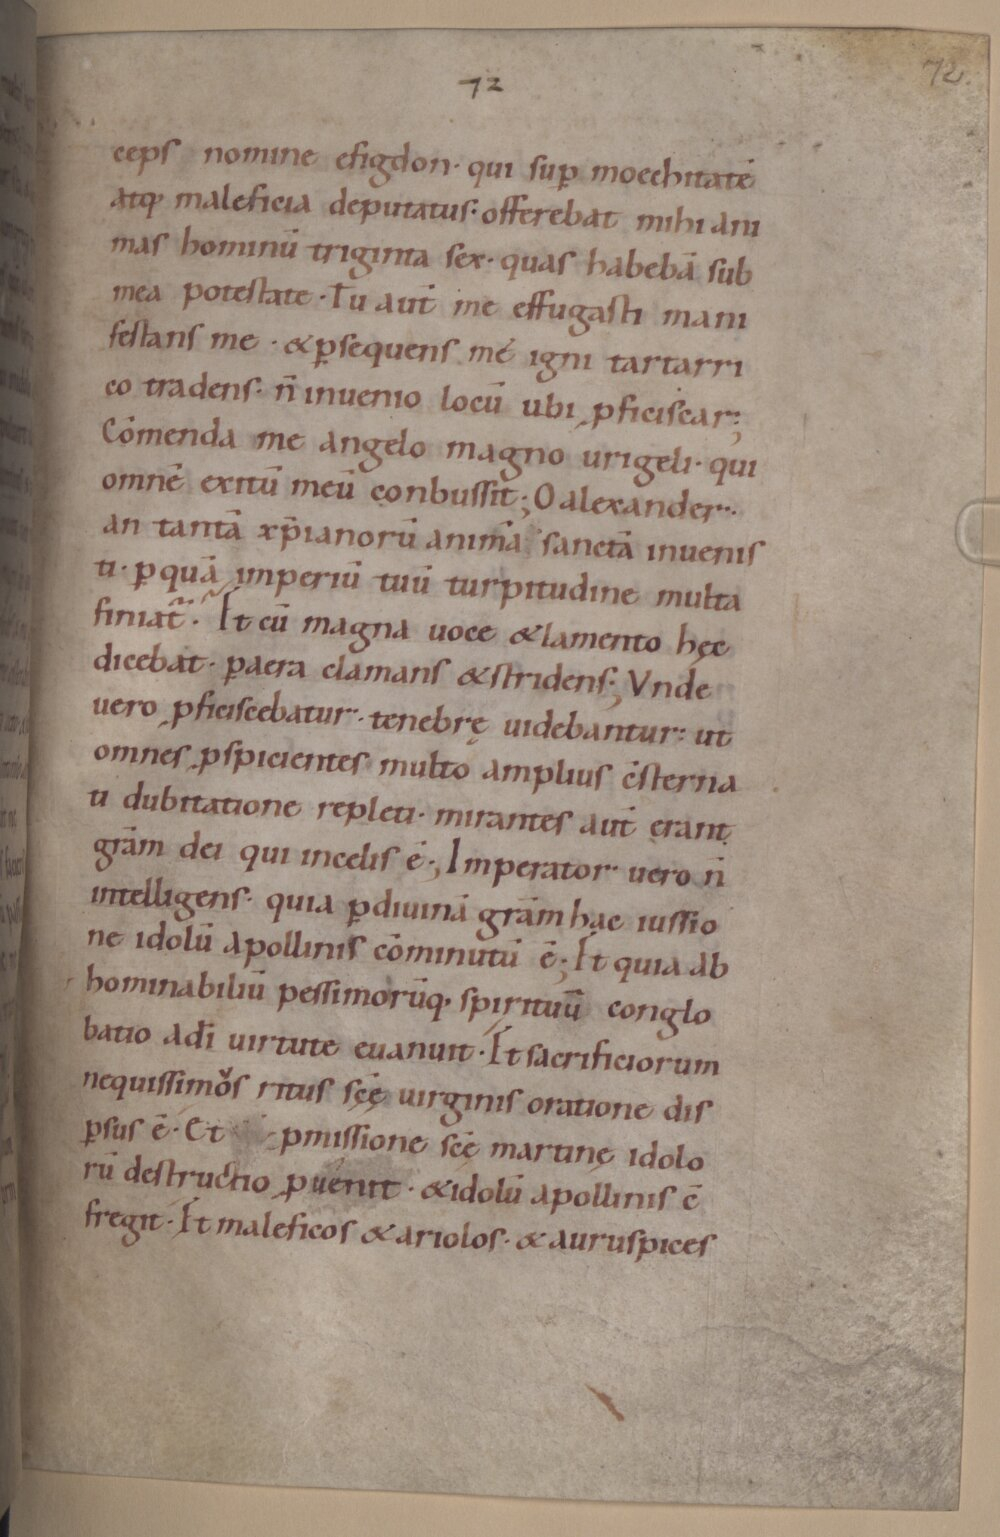 72
72.
ceps nomine efigdon· qui sup̱ moechitatē
atq· maleficia deputatus· offerebat mihi ani
mas hominū triginta sex· quas habebā sub
mea potestate · Tu aut̄ me effugasti mani
festans me · &p̱sequens mé igni tartarri
co tradens· n̄ inuenio locū ubi p̱ficiscar;
Cōmenda me angelo magno urigeli· qui
omnē exitū meū conbussit; O alexander·
an tantā xp̄ianorū animā sanctā inuenis
ti· p̱quā imperiū tuū turpitudine multa
finiat̄· Et cū magna uoce &lamento hęc
dicebat· p̱aera clamans &stridens; Vnde
uero p̱ficiscebatur· tenebrę uidebantur: ut
omnes p̱spicientes multo amplius c̄sterna
ti dubitatione repleti· mirantes aut̄ erant
grām dei qui incelis ē; Imperator uero n̄
intelligens· quia p̱diuinā grām hac iussio
ne idolū apollinis cōminutū ē; Et quia ab
hominabiliū pessimorūq· spirituū conglo
batio adī uirtute euanuit · Et sacrificiorum
nequissimos ritus scē uirginis oratione dis
p̱sus ē · Et p̱missione scē martinę idolo
rū destructio p̱uenit · &idolū apollinis c̄
fregit · Et maleficos &ariolos· & auruspices